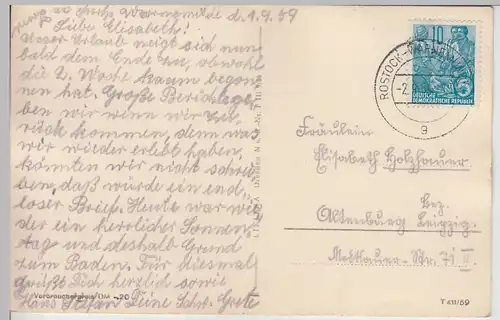 Warnemünde d. 1.9.59
Liebe Elisabeth!
Unser Urlaub neigt sich nun
bald dem Ende zu, obwohl
die 2. Woche kaum begon-
nen hat. Große Berichte ge-
ben wir wenn wir zu-
rück kommen, denn was
wir wieder erlebt haben,
könnten wir nicht schrei-
ben, daß würde ein end-
loser Brief. Heute war wie-
der ein herrlicher Sonnen-
tag und deshalb Grund
zum Baden. Für diesmal
grüßt Dich herzlich sowie
Hans Stefan Deine Schw. Grete
Verbraucherpreis DM -,20
10
5
DEUTSCHE
DEMOKRATISCHE REPUBLIK
ROSTOCK-WARNEMÜNDE
g
Fräulein
Elisabeth Holzhauer
Altenburg Bez. Leipzig.
Str. 71 II
T 411/59